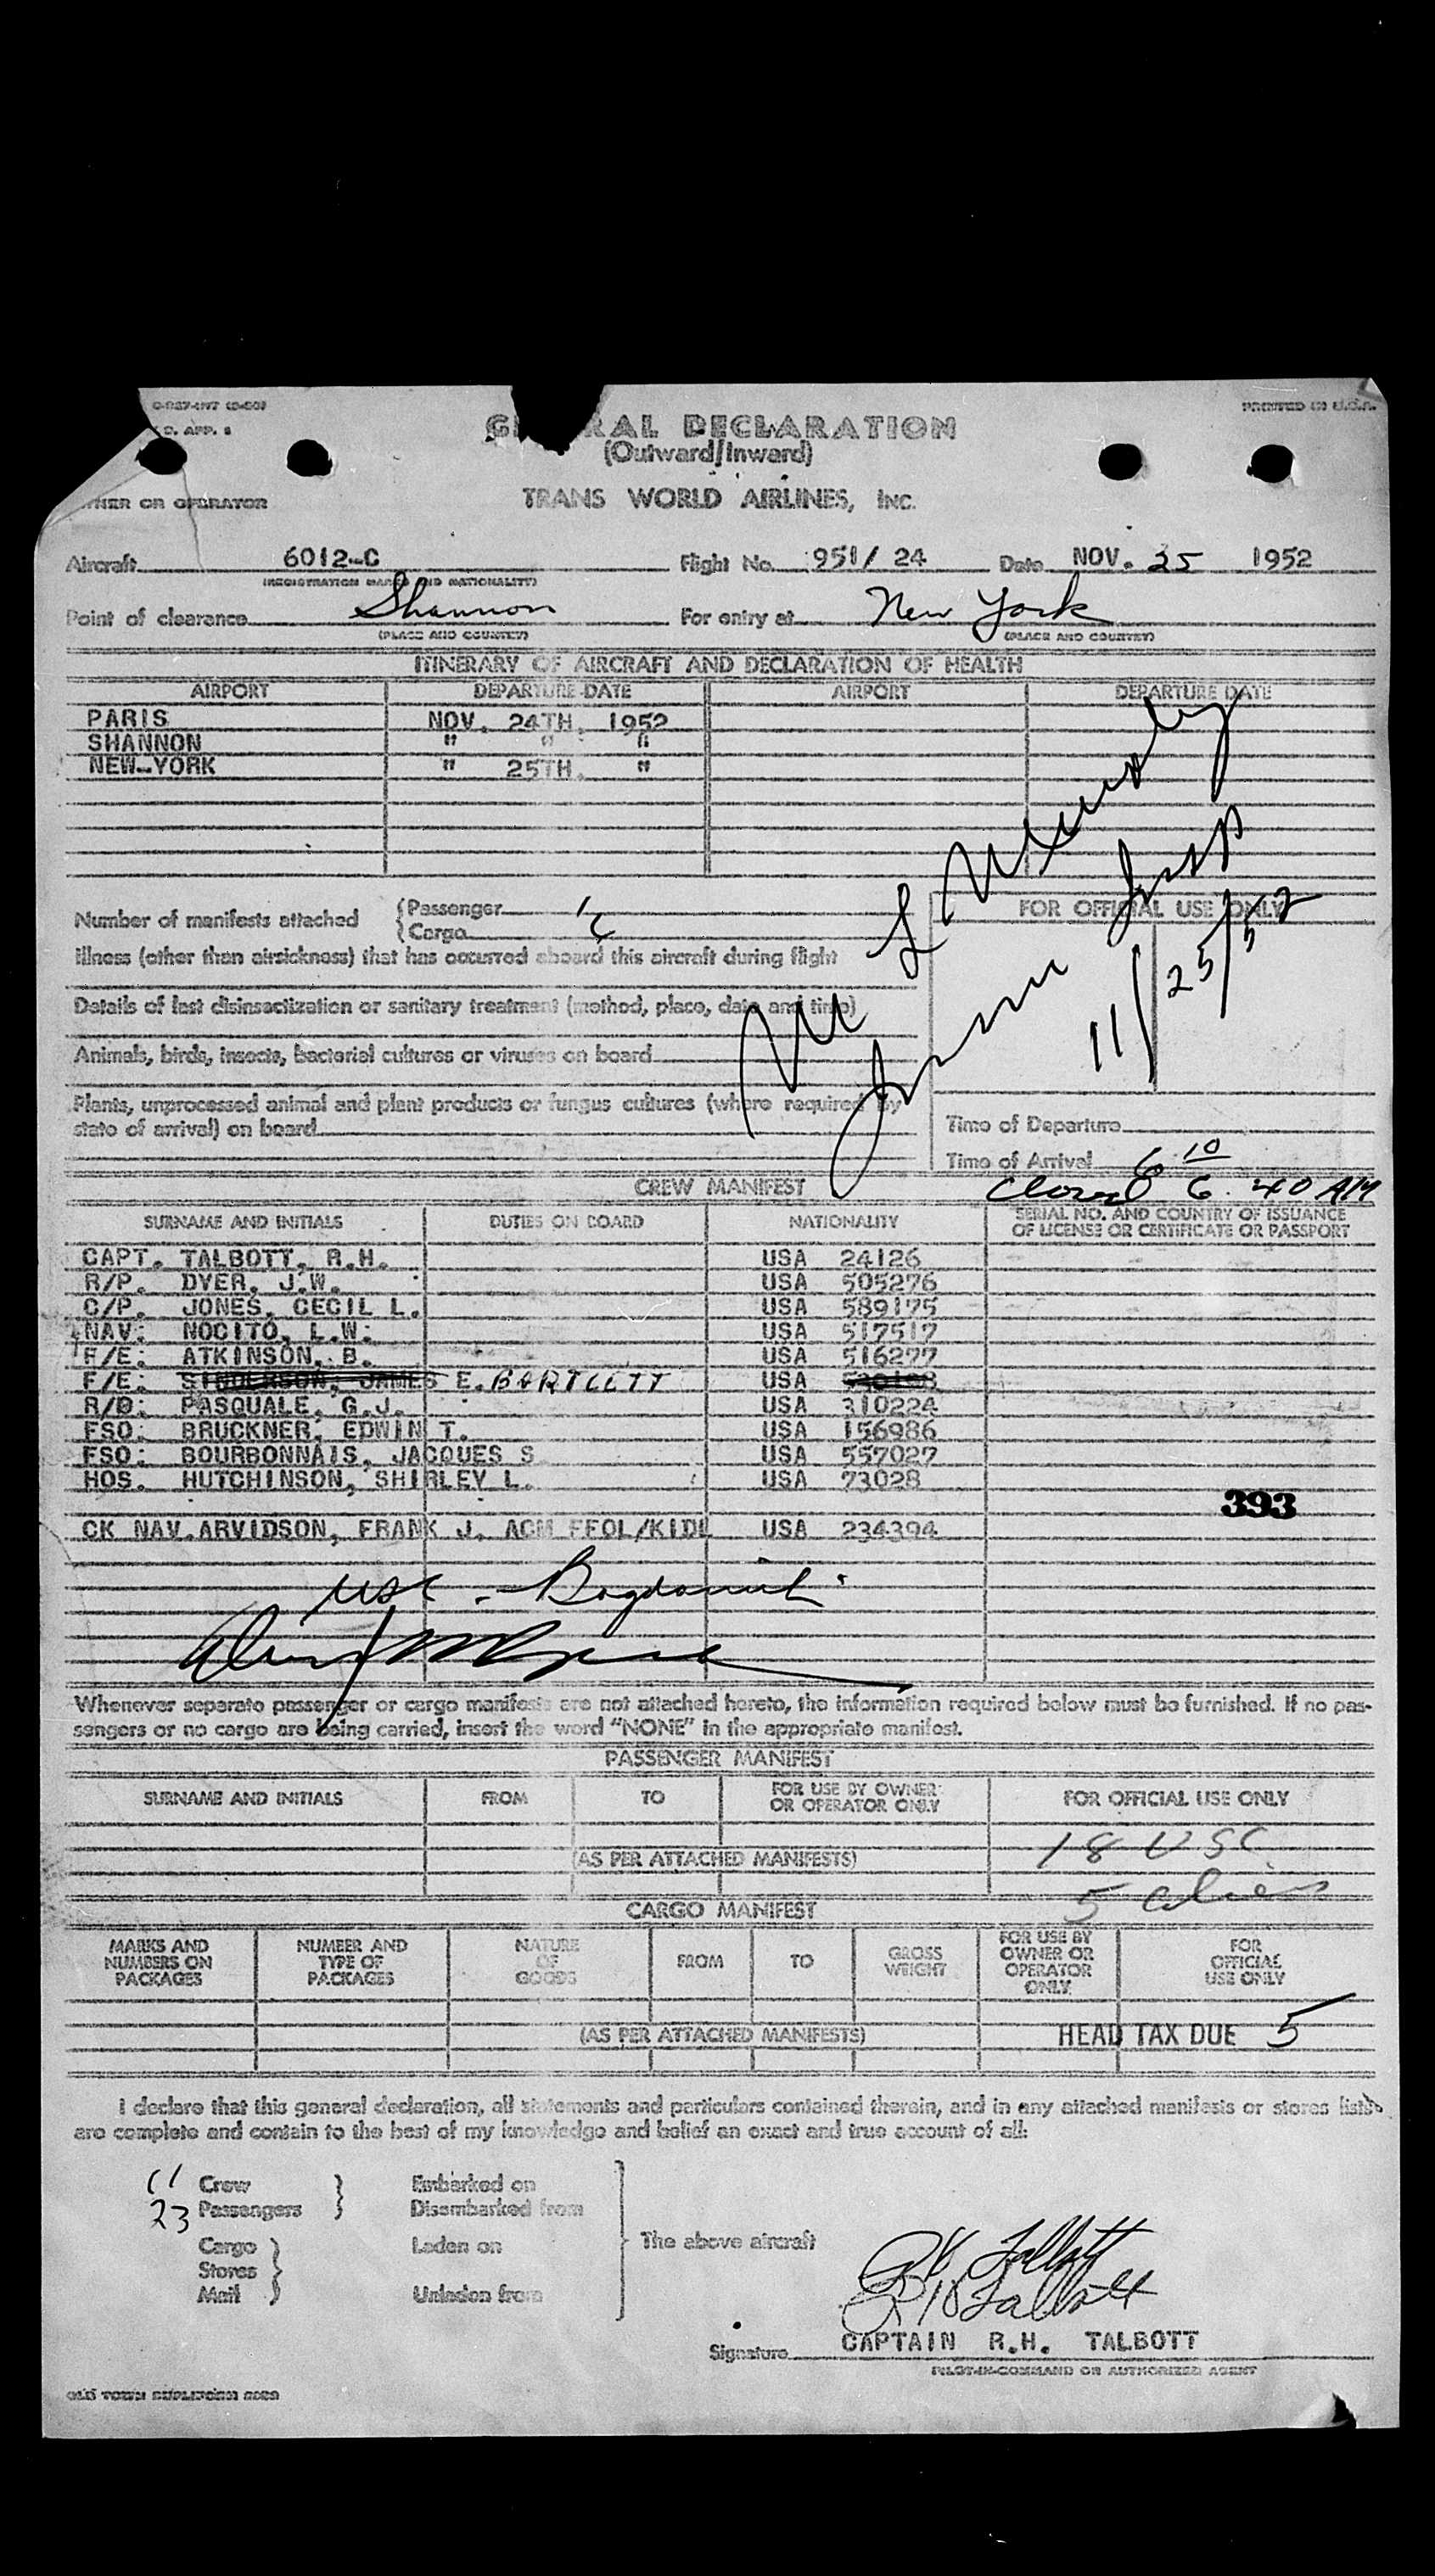 PRINTED IN U.S.A.
GENERAL DECLARATION
(Outward/Inward)
OWNER OR OPERATOR TRANS WORLD AIRLINES, INC.
Aircraft 6012-C Flight No. 951/ 24 Date NOV. 25 1952
(REGISTRATION MARKS AND NATIONALITY)
Point of clearance Shannon For entry at New York
(PLACE AND COUNTRY) (PLACE AND COUNTRY)
ITINERARY OF AIRCRAFT AND DECLARATION OF HEALTH
AIRPORT DEPARTURE DATE AIRPORT DEPARTURE DATE
PARIS NOV. 24TH. 1952
SHANNON " " "
NEW-YORK " 25TH. "
Number of manifests attached {Passenger
{Cargo
FOR OFFICIAL USE ONLY
11/25/52
Illness (other than airsickness) that has occurred aboard this aircraft during flight
Details of last disinsectization or sanitary treatment (method, place, date and time)
Animals, birds, insects, bacterial cultures or viruses on board
Plants, unprocessed animal and plant products or fungus cultures (where required by
state of arrival) on board
Time of Departure
Time of Arrival 6 10
Closed 6.40 AM
CREW MANIFEST
SURNAME AND INITIALS DUTIES ON BOARD NATIONALITY SERIAL NO. AND COUNTRY OF ISSUANCE
OF LICENSE OR CERTIFICATE OR PASSPORT
CAPT. TALBOTT, R.H. USA 24126
R/P. DYER, J.W. USA 505276
C/P. JONES, CECIL L. USA 589175
NAV: NOCITO, L.W. USA 517517
F/E: ATKINSON, B. USA 516277
F/E: SINDERSON, JAMES E. BARTLETT USA
R/O: PASQUALE, G.J. USA 310224
FSO: BRUCKNER, EDWIN T. USA 156986
FSO: BOURBONNAIS, JACQUES S USA 557027
HOS. HUTCHINSON, SHIRLEY L. USA 73028
393
CK NAV. ARVIDSON, FRANK J. ACM FFOL/KIDL USA 234394
Whenever separate passenger or cargo manifests are not attached hereto, the information required below must be furnished. If no pas-
sengers or no cargo are being carried, insert the word "NONE" in the appropriate manifest.
PASSENGER MANIFEST
SURNAME AND INITIALS FROM TO FOR USE BY OWNER OR OPERATOR ONLY FOR OFFICIAL USE ONLY
18 USC
(AS PER ATTACHED MANIFESTS)
5 aliens
CARGO MANIFEST
MARKS AND NUMBERS ON PACKAGES NUMBER AND TYPE OF PACKAGES NATURE OF GOODS FROM TO GROSS WEIGHT FOR USE BY OWNER OR OPERATOR ONLY FOR OFFICIAL USE ONLY
(AS PER ATTACHED MANIFESTS) HEAD TAX DUE 5
I declare that this general declaration, all statements and particulars contained therein, and in any attached manifests or stores lists
are complete and contain to the best of my knowledge and belief an exact and true account of all:
11 Crew Embarked on
23 Passengers Disembarked from
Cargo Laden on The above aircraft
Stores
Mail Unladen from
R H Talbott
R H Talbott
Signature CAPTAIN R.H. TALBOTT
PILOT-IN-COMMAND OR AUTHORIZED AGENT